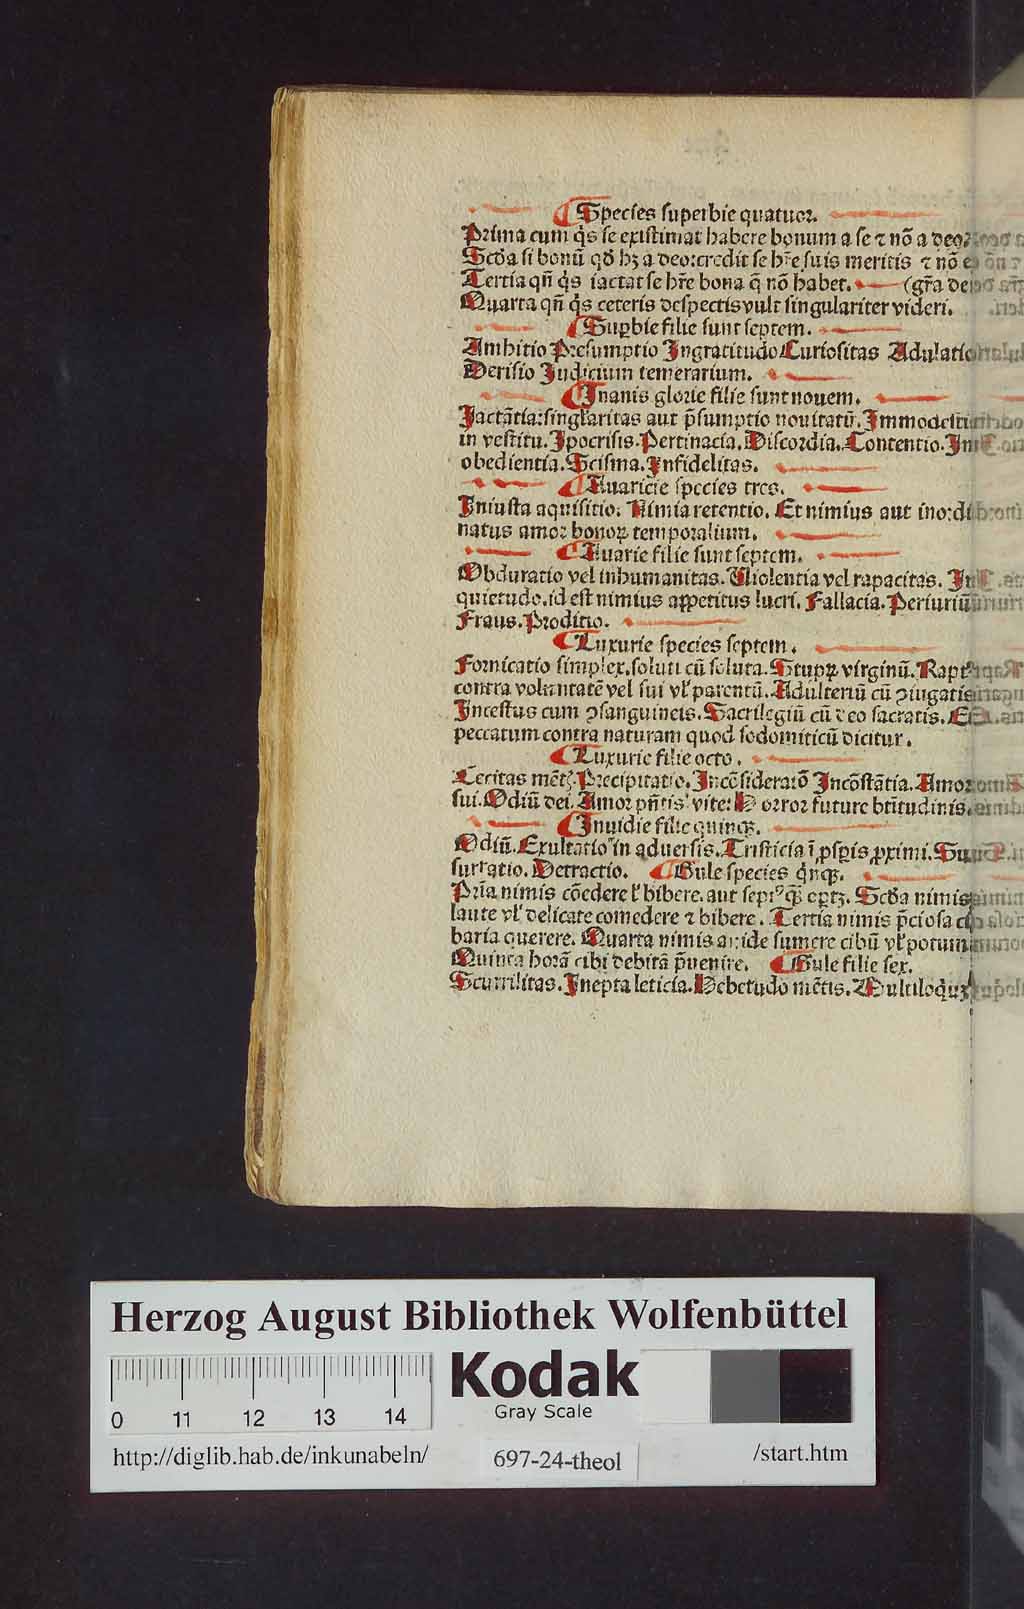 ¶Species superbie quatuor.
Prima cum q̇s se existimat habere bonum a se ⁊ nō a deo.
Scd̄a si bonū qd̄ hꝫ a deo: credit se hr̄e suis meritis ⁊ nō e
Tertia qn̄ q̇s iactat se hr̄e bona q̄ nō habet. (gr̄a dei
Quarta qn̄ q̇s ceteris despectis vult singulariter videri.
¶Suꝑbie filie sunt septem.
Ambitio Presumptio Ingratitudo Curiositas Adulatio
Derisio Judicium temerarium.
¶Inanis glorie filie sunt nouem.
Jactātia: singl̓aritas aut p̄sumptio nouitatū. Immodesti
in vestitu. Ipocrisis. Pertinacia. Discordia. Contentio. In
obedientia. Scisma. Infidelitas.
¶Auaricie species tres.
Iniusta aquisitio. Nimia retentio. Et nimius aut inordi
natus amor bonoꝝ temporalium.
¶Auarie filie sunt septem.
Obduratio vel inhumanitas. Uiolentia vel rapacitas. In
quietudo. id est nimius appetitus lucri. Fallacia. Periuriū
Fraus. Proditio.
¶Luxurie species septem.
Fornicatio simplex. soluti cū soluta. Stupꝝ virginū. Rapt⁹
contra voluntatē vel sui vl̓ parentū. Adulteriū cū ꝯiugatis
Incestus cum ꝯsanguineis. Sacrilegiū cū deo sacratis. Et
peccatum contra naturam quod sodomiticū dicitur.
¶Luxurie filie octo.
Cecitas mēt̄. Precipitatio. Incōsideratō Incōstātia. Amor
sui. Odiū dei. Amor pn̄tis vite: Horror future btītudinis.
¶Inuidie filie quinqꝫ.
Odiū. Exultatio in aduersis. Tristicia ī ꝓsꝑis ꝓximi. Su
surratio. Detractio. ¶Gule species q̇nqꝫ.
Pri̅a nimis cōedere l̓ bibere. aut sepi⁹ qꝫ oꝑtꝫ. Scd̄a nimis
laute vl̓ delicate comedere ⁊ bibere. Tertia nimis p̄ciosa ci
baria querere. Quarta nimis auide sumere cibū vl̓ potum
Quinta horā cibi debitā p̄uenire. ¶Gule filie sex.
Scurrilitas. Inepta leticia. Hebetudo mētis. Multiloq̇uꝫ
Herzog August Bibliothek Wolfenbüttel
Kodak
Gray Scale
0 11 12 13 14
http://diglib.hab.de/inkunabeln/ 697-24-theol /start.htm